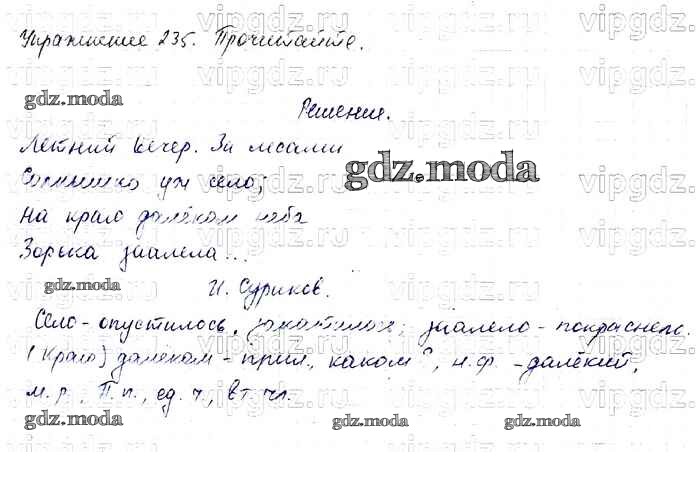 Упражнение 235. Прочитайте.
gdz.moda
Решение.
Летний вечер. За лесами
Солнышко уж село;
gdz.moda
На краю далёком неба
Зорька заалела...
gdz.moda
И. Суриков.
Село - опустилось, закатилось; заалело - покраснело.
(Краю) далёком - прил., каком?, н.ф. - далёкий,
м.р., П.п., ед.ч., вт.чл.
gdz.moda
gdz.moda
gdz.moda
vipgdz.ru